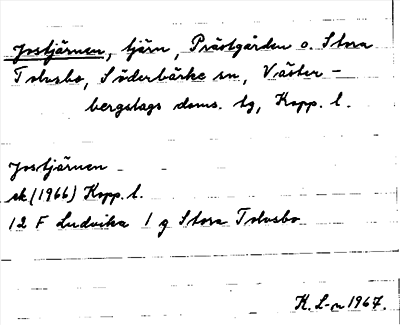 Jostjärnen, tjärn, Prästgården o. Stora
Tolvsbo, Söderbärke sn, Väster-
bergslags doms. tg, Kopp. l.
Jostjärnen
ek (1966) Kopp. l.
12 F Ludvika 1 g Stora Tolvsbo
K. L-n 1967.